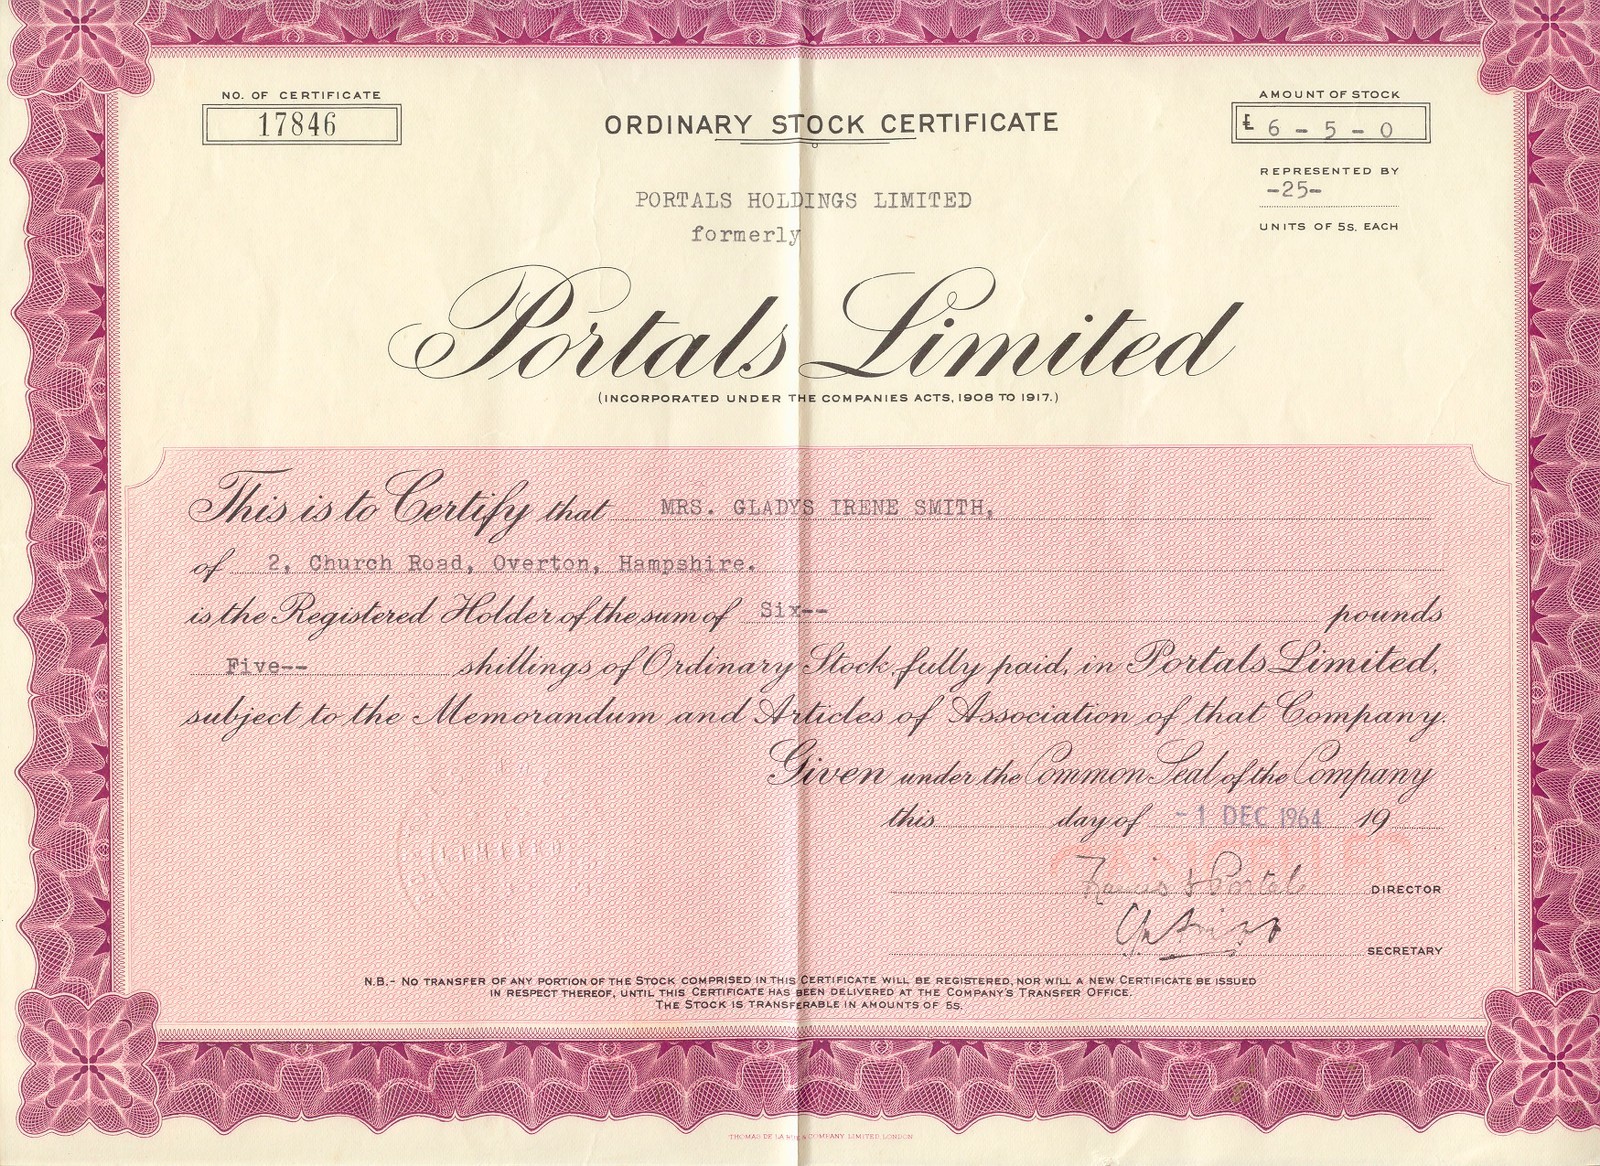 NO. OF CERTIFICATE
17846
ORDINARY STOCK CERTIFICATE
AMOUNT OF STOCK
£ 6 - 5 - 0
REPRESENTED BY
-25-
UNITS OF 5S. EACH
PORTALS HOLDINGS LIMITED
formerly
Portals Limited
(INCORPORATED UNDER THE COMPANIES ACTS, 1908 TO 1917.)
This is to Certify that MRS. GLADYS IRENE SMITH,
of 2, Church Road, Overton, Hampshire.
is the Registered Holder of the sum of Six-- pounds
Five-- shillings of Ordinary Stock, fully paid, in Portals Limited,
subject to the Memorandum and Articles of Association of that Company.
Given under the Common Seal of the Company
this day of -1 DEC 1964 19
Portal DIRECTOR
SECRETARY
LIMITED
N.B.- NO TRANSFER OF ANY PORTION OF THE STOCK COMPRISED IN THIS CERTIFICATE WILL BE REGISTERED, NOR WILL A NEW CERTIFICATE BE ISSUED
IN RESPECT THEREOF, UNTIL THIS CERTIFICATE HAS BEEN DELIVERED AT THE COMPANY'S TRANSFER OFFICE.
THE STOCK IS TRANSFERABLE IN AMOUNTS OF 5S.
THOMAS DE LA RUE & COMPANY LIMITED, LONDON